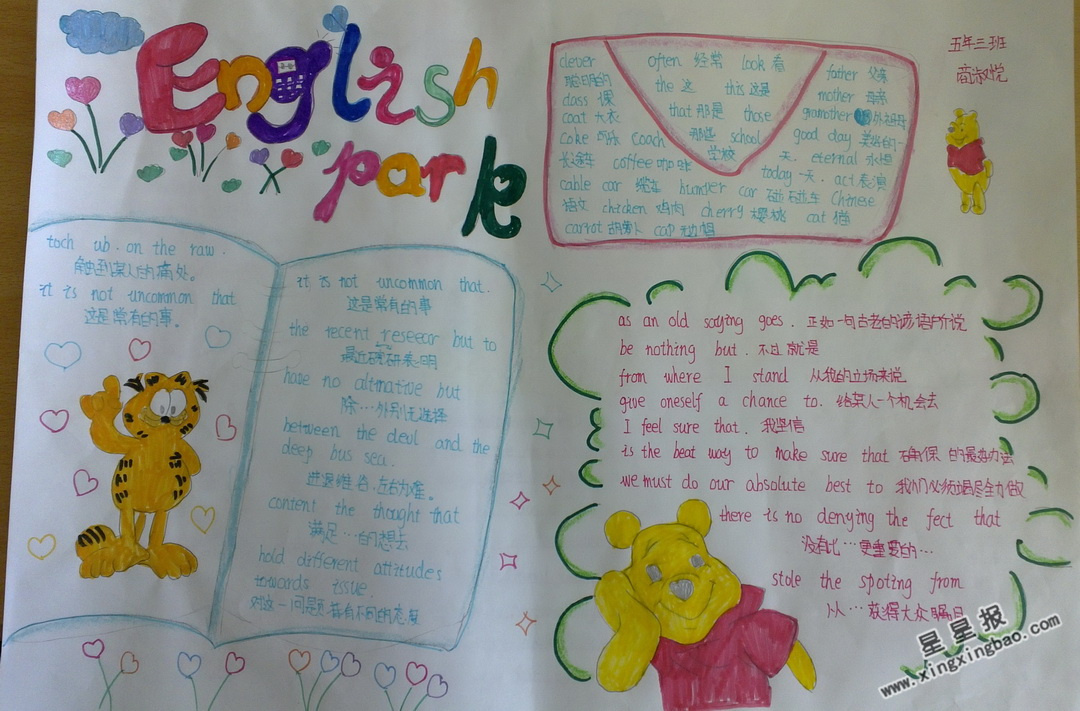 English
park
五年三班
商淑悦
clever often 经常 look 看
聪明的 the 这 this 这是 father 父亲
class 课 that 那是 those mother 母亲
coat 大衣 那些 school gramother 外祖母
coke 可乐 coach 学校 good day 美好的一
长途车 coffee 咖啡 天. eternal 永恒
today 一天. act 表演
cable car 缆车 bumder car 碰碰车 Chinese
语文 chicken 鸡肉 cherry 樱桃 cat 猫
carrot 胡萝卜 cap
toch ub. on the raw.
触到某人的痛处。
it is not uncommon that
这是常有的事。
it is not uncommon that.
这是常有的事
the recent reseear but to
最近 研表明
have no altmative but
除…外别无选择
between the deul and the
deep bus sea.
进退维谷.左右为难。
content the thought that
满足…的想去
hold different attitudes
towards issue.
对这一问题.若有不同的态度
as an old saying goes. 正如一句古老的谚语所说
be nothing but. 不过就是
from where I stand 从我的立场来说
give oneself a chance to. 给某人一个机会去
I feel sure that. 我坚信
is the beat way to make sure that 确保 的最办法
we must do our absolute best to 我们必须竭尽全力做
there is no denying the fect that
没有比…更重要的…
stole the spoting from
从…获得大众瞩目
星星报
www.xingxingbao.com